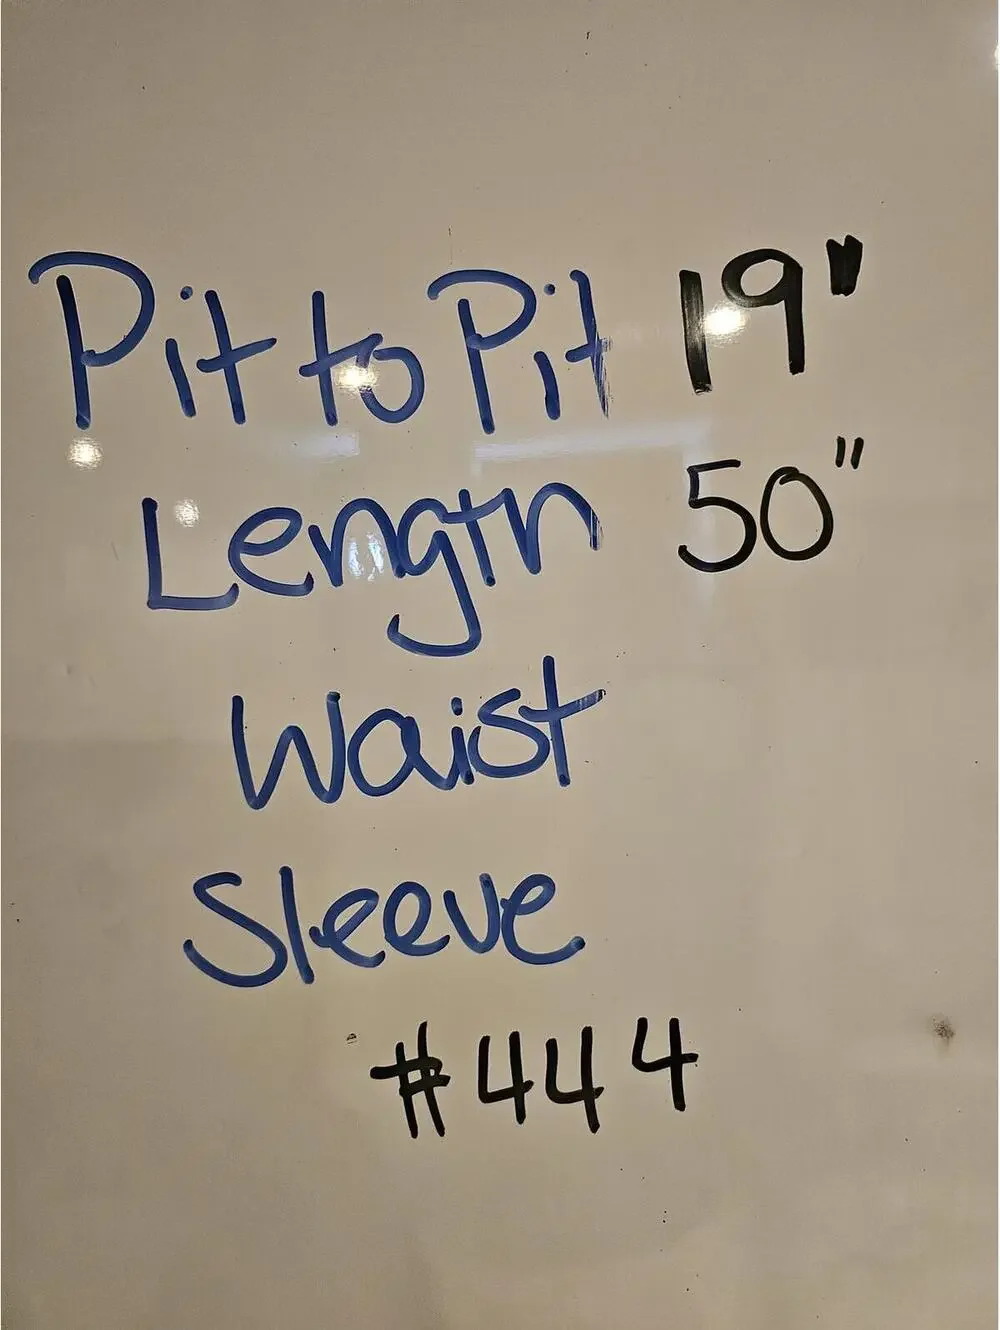 Pit to Pit 19"
Length 50"
Waist
Sleeve
#444